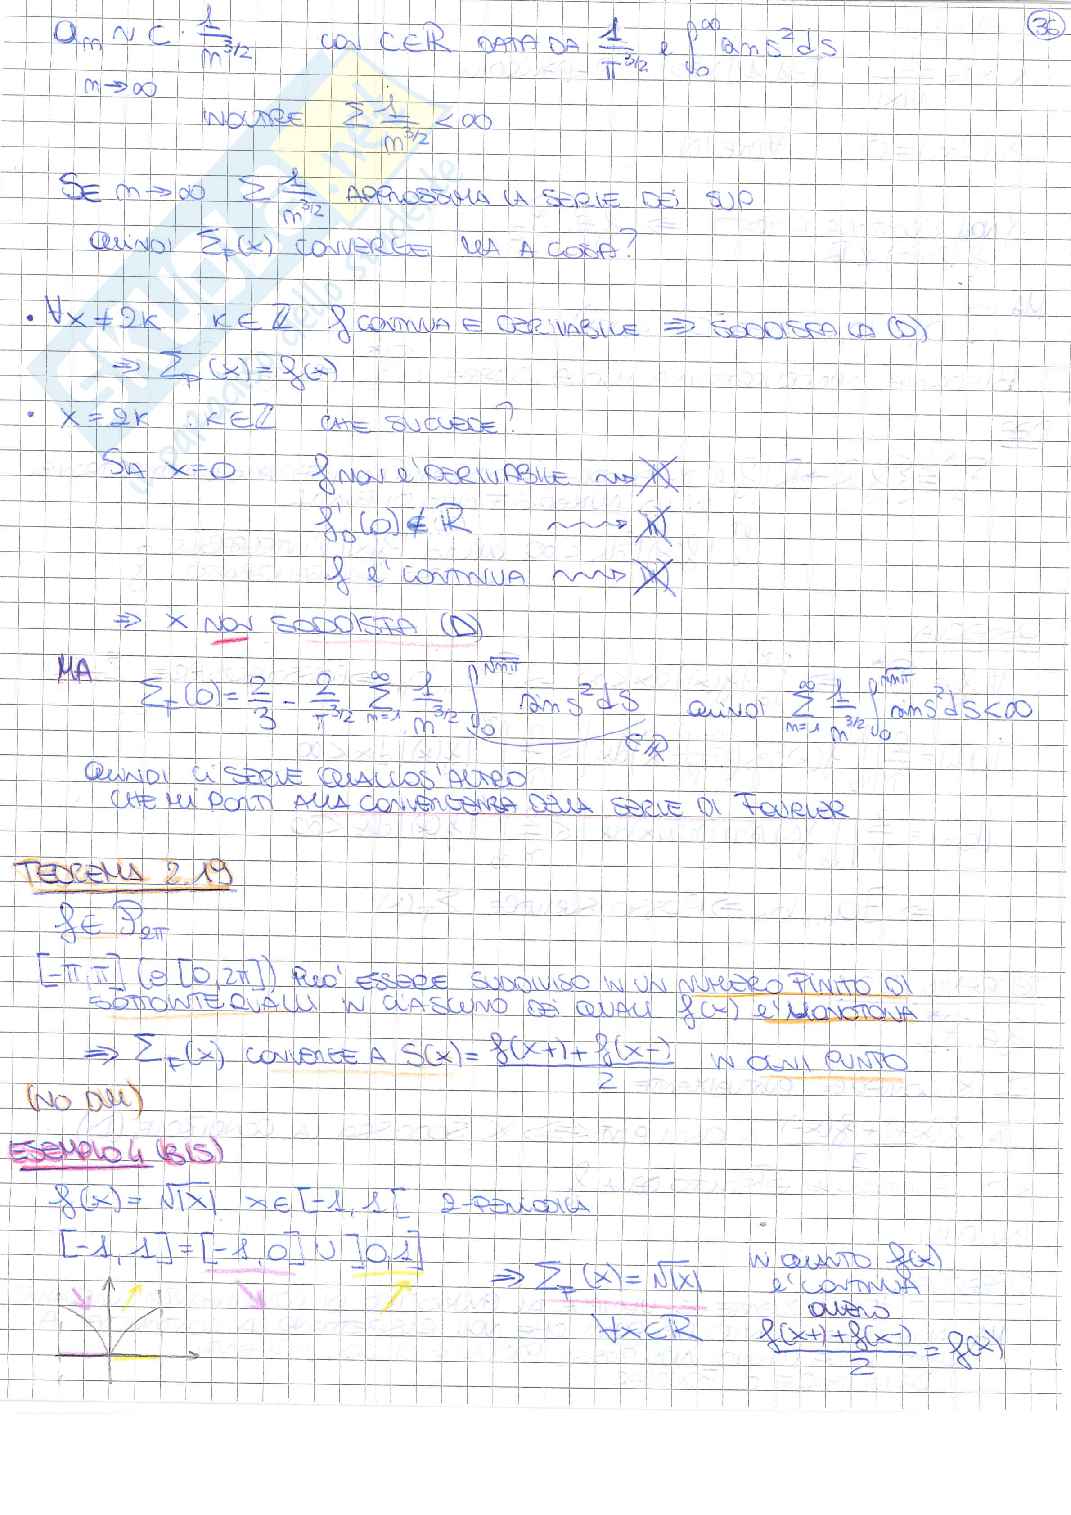 36
a_n ~ C · 1/n^{3/2} CON C∈ℝ DATA DA 1/π^{3/2} e ∫_0^∞ sin s² ds
n→∞
INOLTRE Σ 1/n^{3/2} < ∞
SE n→∞ Σ 1/n^{3/2} APPROSSIMA LA SERIE DEI SUP
QUINDI Σ_F(x) CONVERGE MA A COSA?
• ∀x ≠ 2K K∈ℤ f CONTINUA E DERIVABILE ⇒ SODDISFA LA (D)
⇒ Σ_F(x) = f(x)
• x = 2K K∈ℤ CHE SUCCEDE?
SIA x=0 f NON È DERIVABILE ⇝
f'_D(0) ∉ ℝ ⇝
f È CONTINUA ⇝
⇒ x NON SODDISFA (D)
MA Σ_F(0) = 2/3 - 2/π^{3/2} Σ_{n=1}^∞ 1/n^{3/2} ∫_0^{√nπ} sin s² ds QUINDI Σ_{n=1}^∞ 1/n^{3/2} ∫_0^{√nπ} sin s² ds < ∞
∈ℝ
QUINDI CI SERVE QUALCOS'ALTRO
CHE MI PORTI ALLA CONVERGENZA DELLA SERIE DI FOURIER
TEOREMA 2.19
f ∈ P_{2π}
[-π,π] (o [0,2π]) PUÒ ESSERE SUDDIVISO IN UN NUMERO FINITO DI
SOTTOINTERVALLI IN CIASCUNO DEI QUALI f(x) È MONOTONA
⇒ Σ_F(x) CONVERGE A S(x) = (f(x+) + f(x-))/2 IN OGNI PUNTO
(NO DIM)
ESEMPIO 4 (BIS)
f(x) = √|x| x∈[-1,1[ 2-PERIODICA
[-1,1] = [-1,0] ∪ ]0,1]
⇒ Σ_F(x) = √|x| IN QUANTO f(x)
È CONTINUA
∀x∈ℝ OVVERO
(f(x+) + f(x-))/2 = f(x)